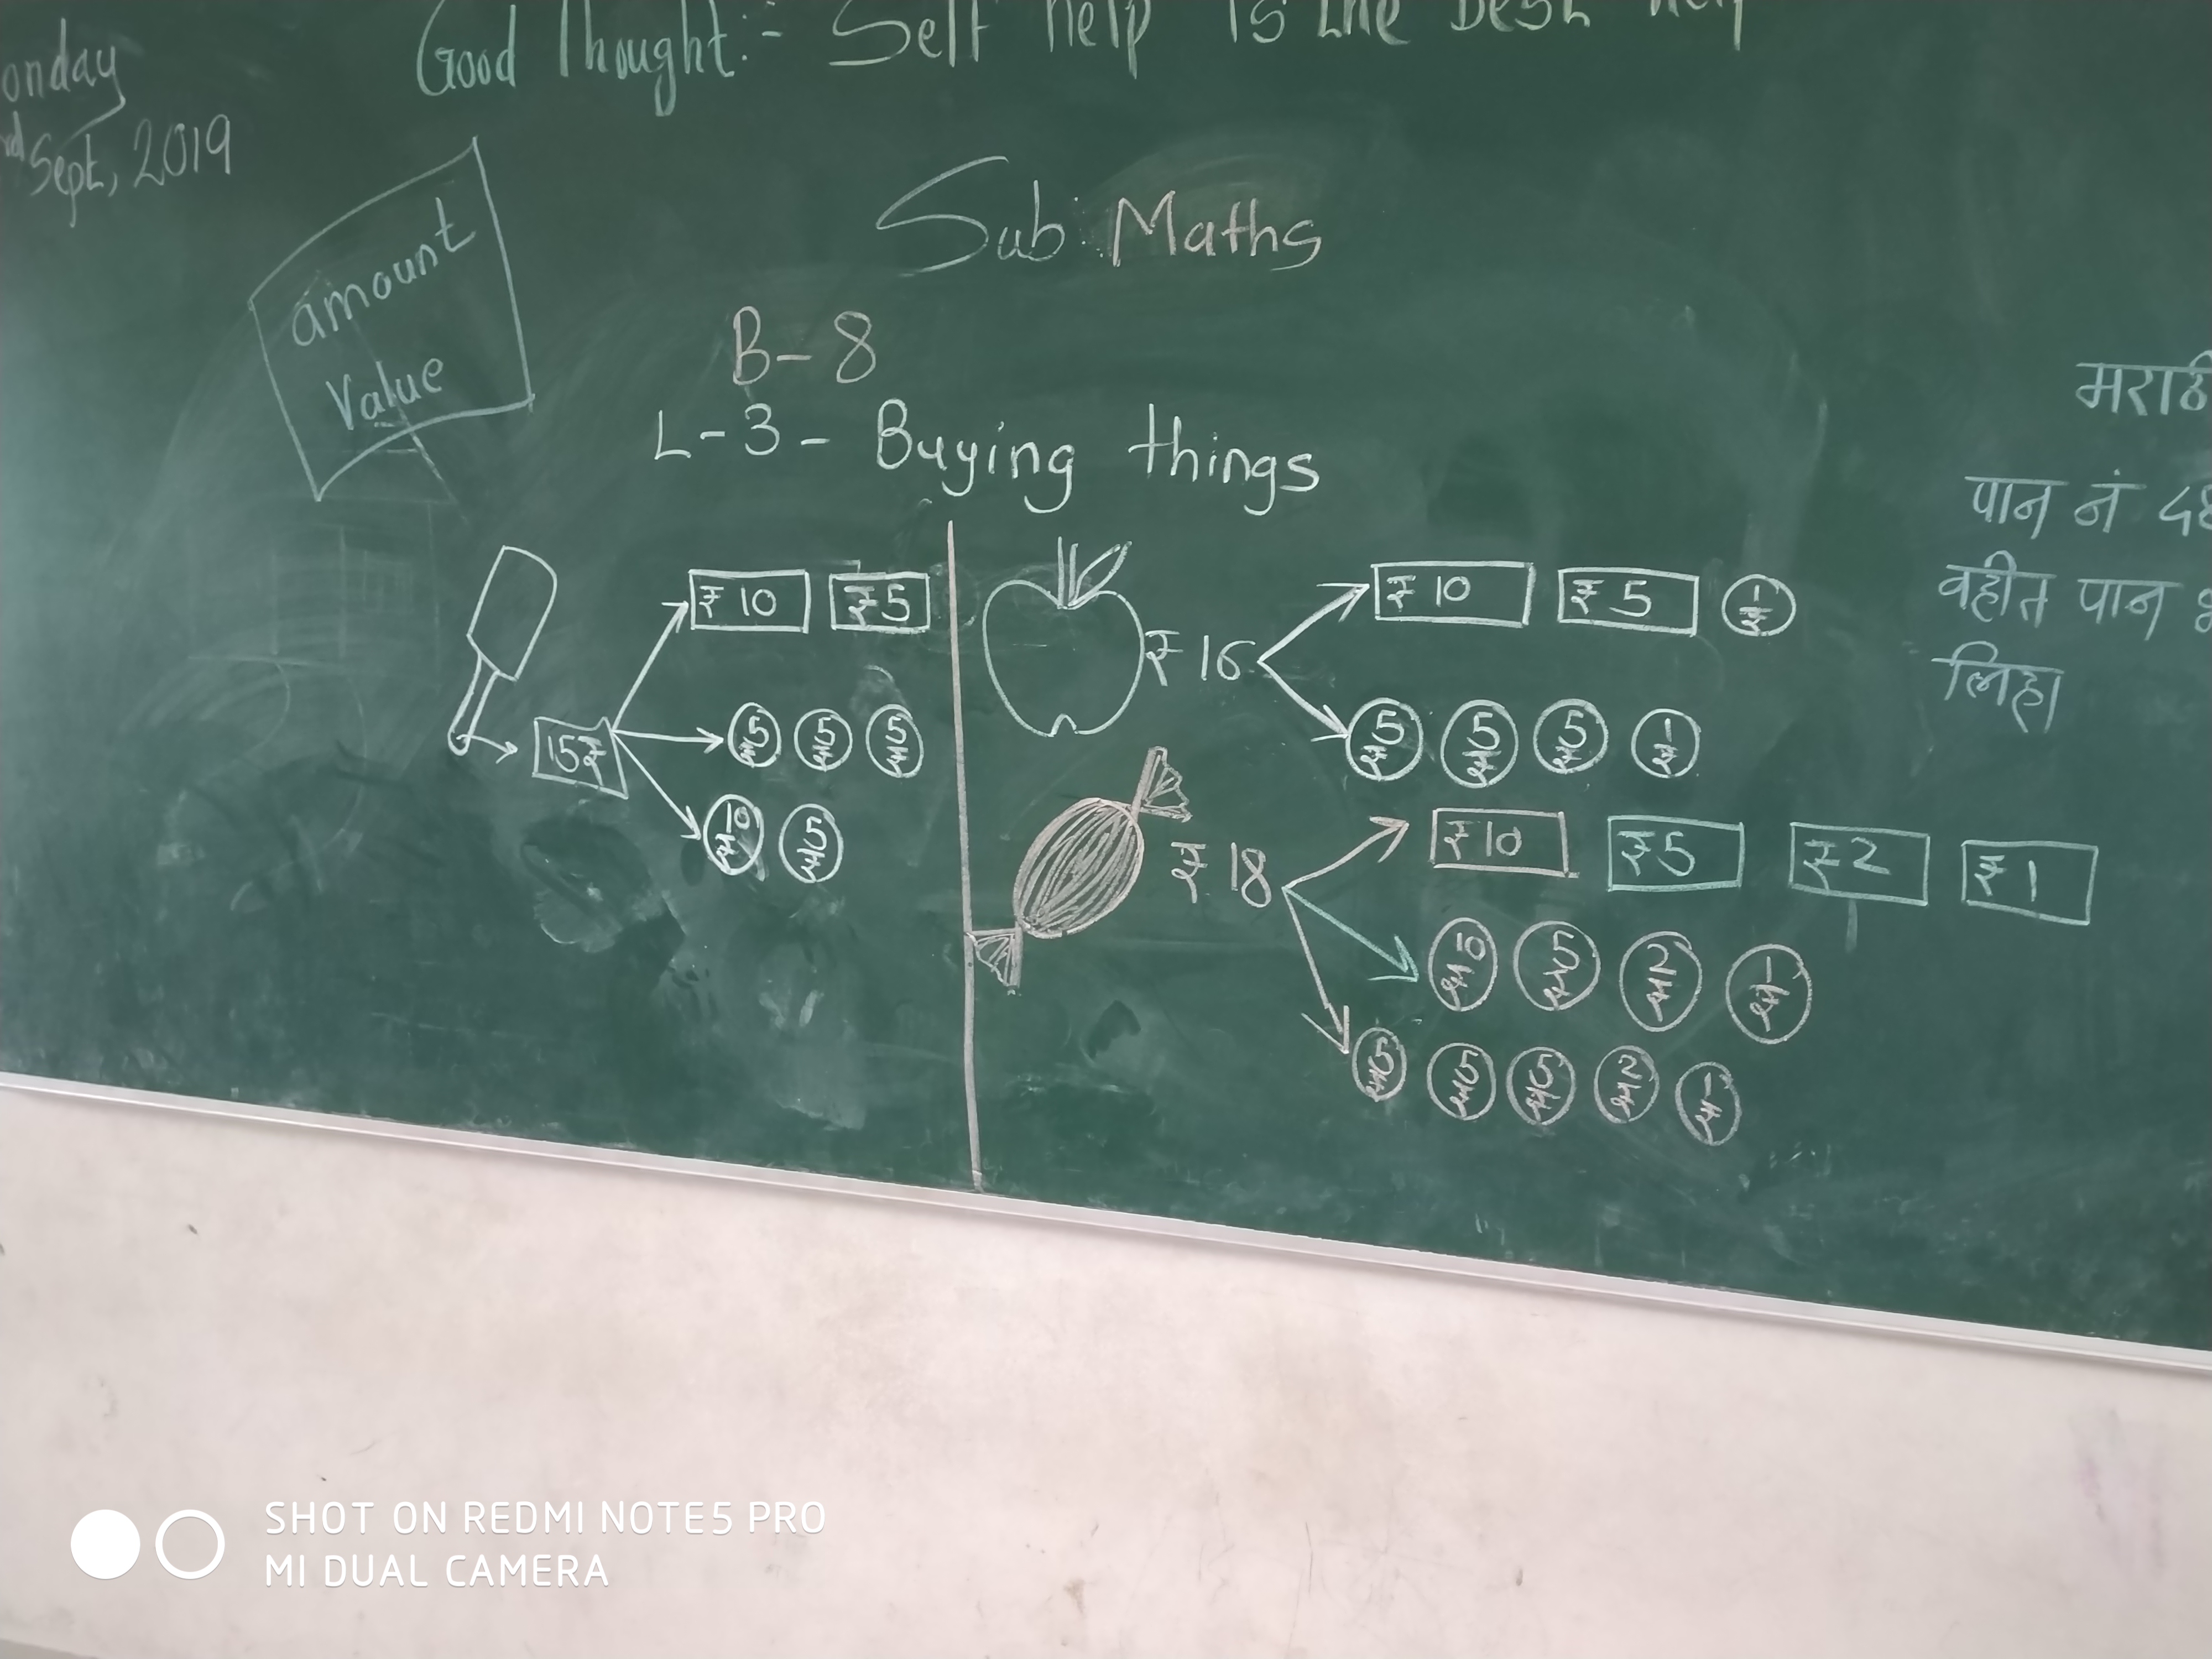 Good Thought:- Self help is the best help
onday
rd Sept, 2019
amount
Value
Sub: Maths
B-8
L-3- Buying things
15₹
₹10 ₹5
5₹ 5₹ 5₹
10₹ 5₹
₹16
₹10 ₹5 1₹
5₹ 5₹ 5₹ 1₹
₹18
₹10 ₹5 ₹2 ₹1
10₹ 5₹ 2₹ 1₹
5₹ 5₹ 5₹ 2₹ 1₹
मराठी
पान नं
वहीत पान
लिहा
SHOT ON REDMI NOTE5 PRO
MI DUAL CAMERA